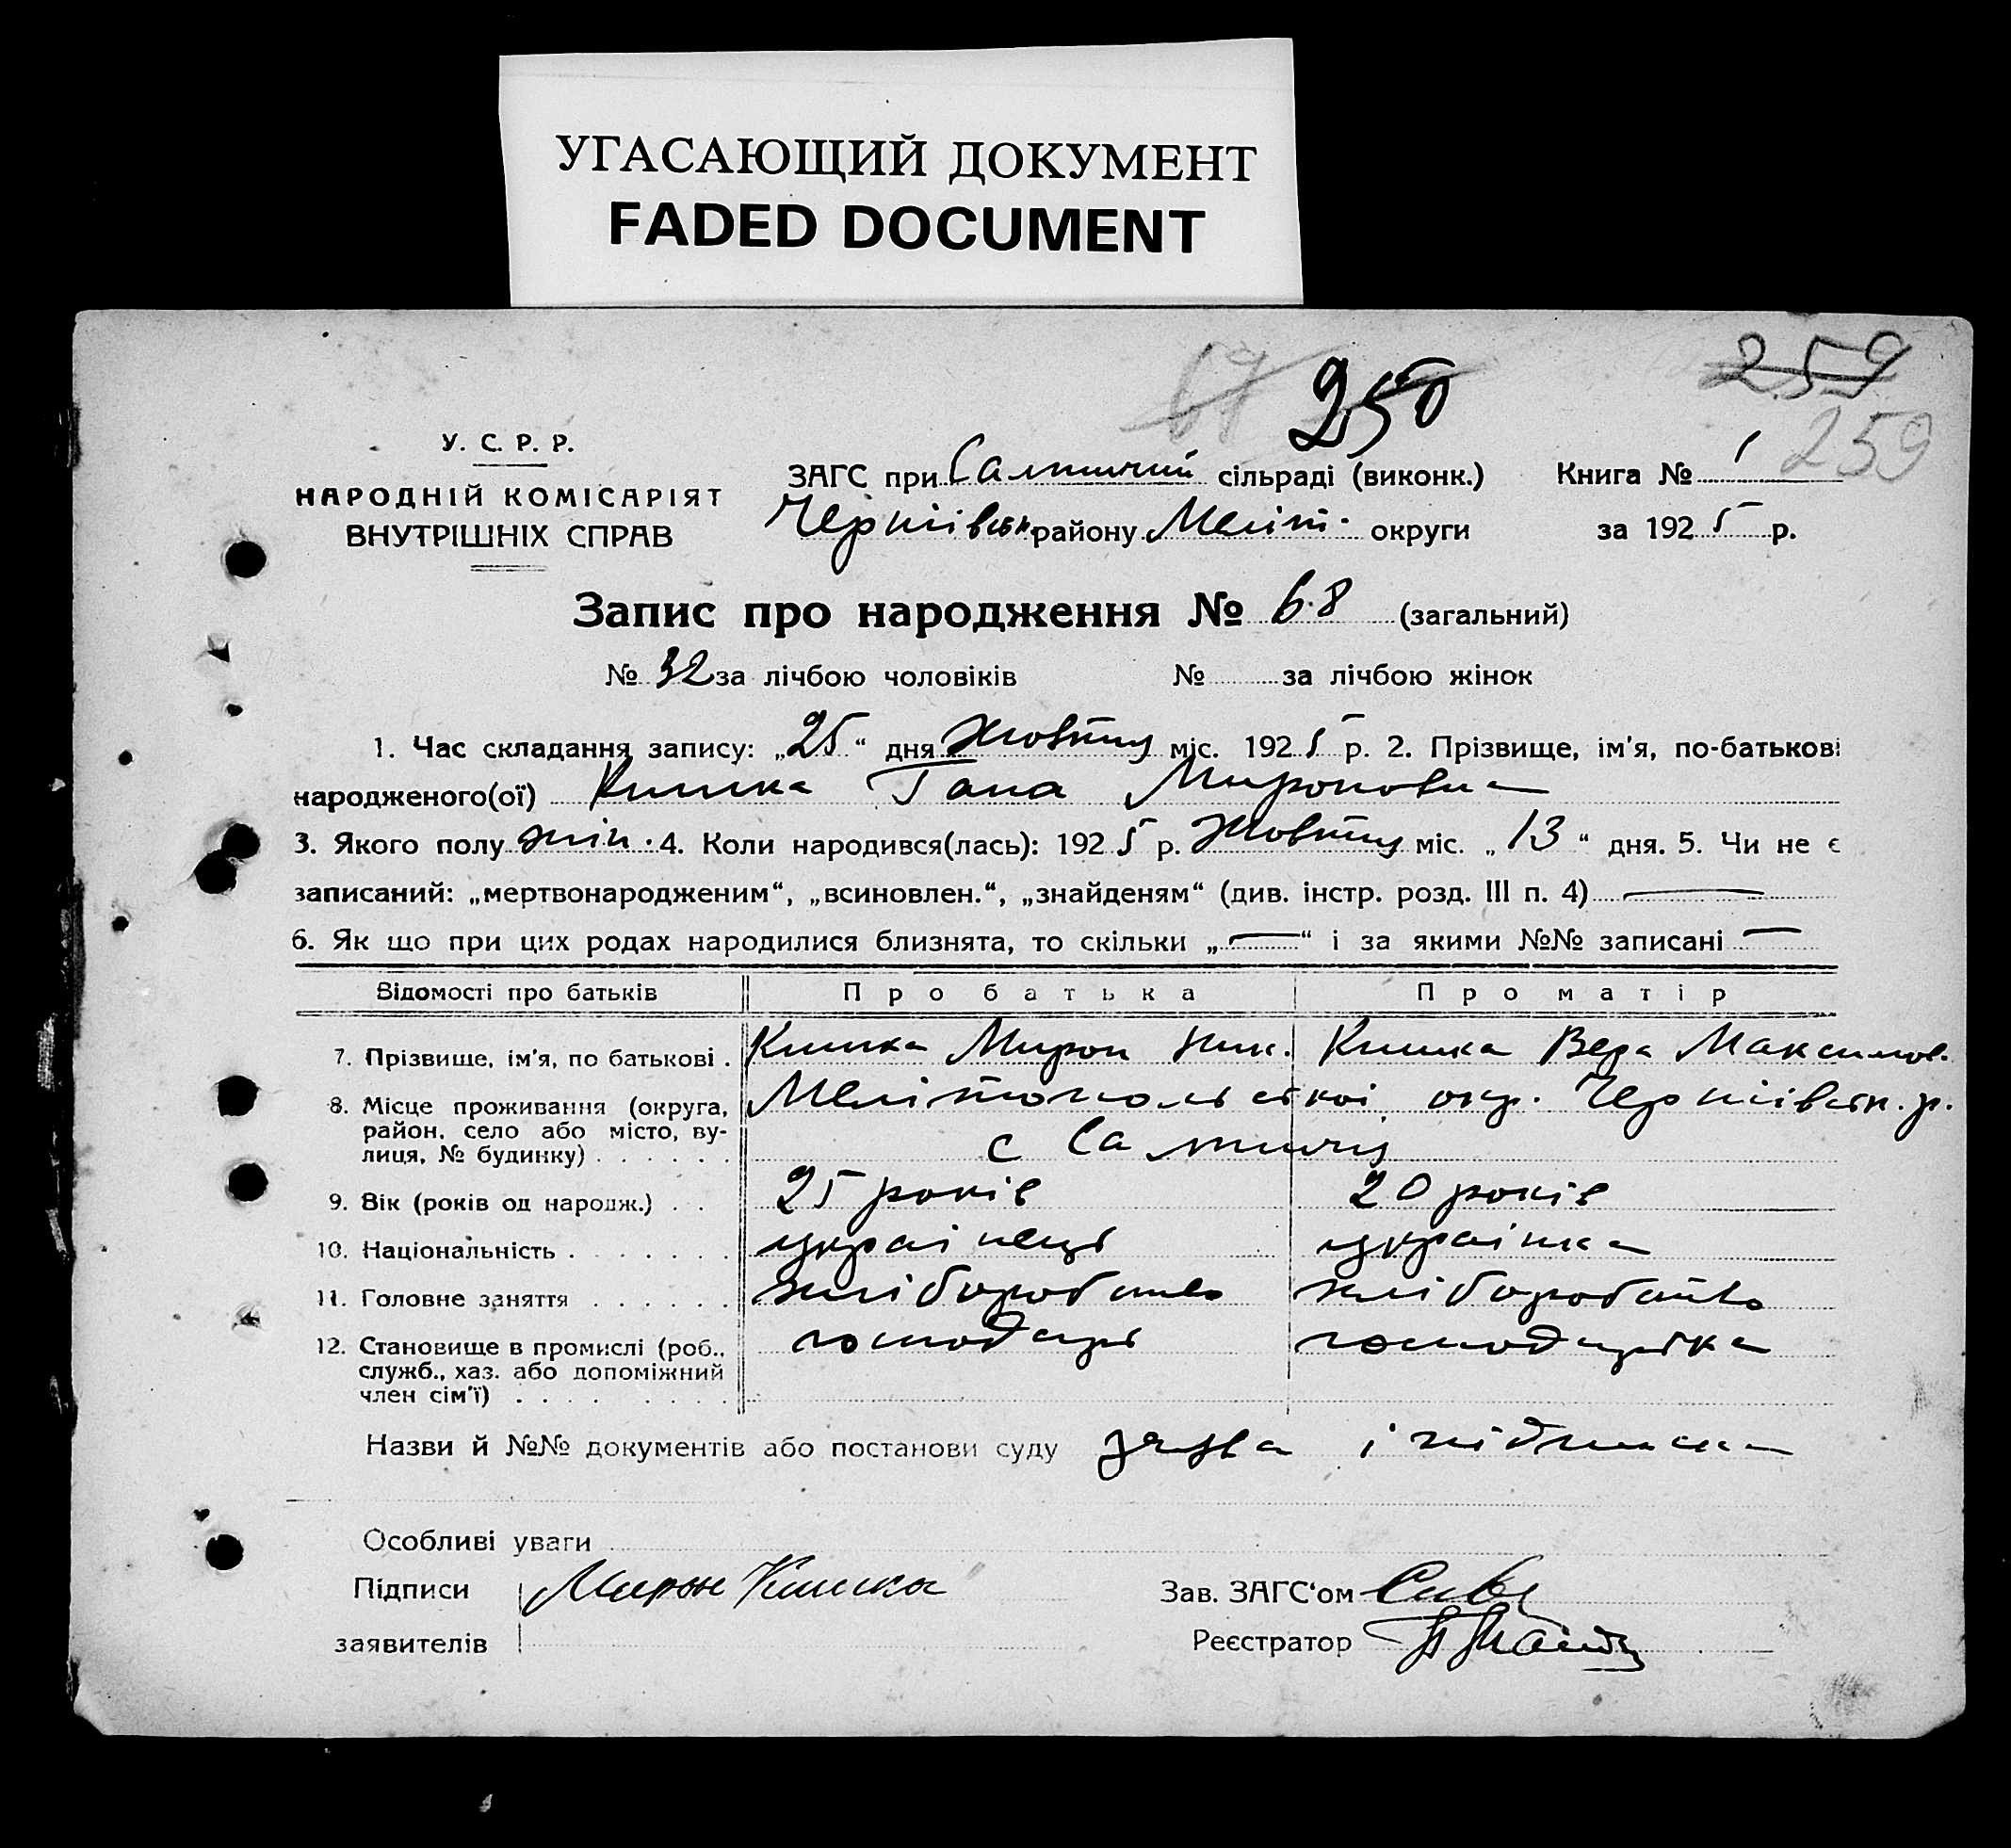 УГАСАЮЩИЙ ДОКУМЕНТ
FADED DOCUMENT
67 250 259
259
У. С. Р. Р.
НАРОДНІЙ КОМІСАРІЯТ
ВНУТРІШНІХ СПРАВ
ЗАГС при сільраді (виконк.) Книга № 1
Чернігівськ. району Меліт. округи за 1925 р.
Запис про народження № 68 (загальний)
№ 32 за лічбою чоловіків № за лічбою жінок
1. Час складання запису: „25“ дня Жовтня міс. 1925 р. 2. Прізвище, ім'я, по-батькові
народженого(ої) Кишка Гана Мироновна
3. Якого полу жін. 4. Коли народився(лась): 1925 р. Жовтня міс. „13“ дня. 5. Чи не є
записаний: „мертвонародженим“, „всиновлен.“, „знайденям“ (див. інстр. розд. III п. 4) —
6. Як що при цих родах народилися близнята, то скільки „—“ і за якими №№ записані —
Відомості про батьків Про батька Про матір
7. Прізвище, ім'я, по батькові . Кишка Мирон Ник. Кишка Вера Максимов.
8. Місце проживання (округа, Мелітопольскої окр. Чернігівськ. р.
район, село або місто, ву-
лиця, № будинку) . . . . . . с
9. Вік (років од народж.) . . 25 років 20 років
10. Національність . . . . . . . українець українка
11. Головне заняття . . . . . . хліборобство хліборобство
12. Становище в промислі (роб., господарь господарька
служб., хаз. або допоміжний
член сім'ї) . . . . . . . .
Назви й №№ документів або постанови суду заява і підписка
Особливі уваги
Підписи Мирон Кишка Зав. ЗАГС'ом
заявителів Реєстратор